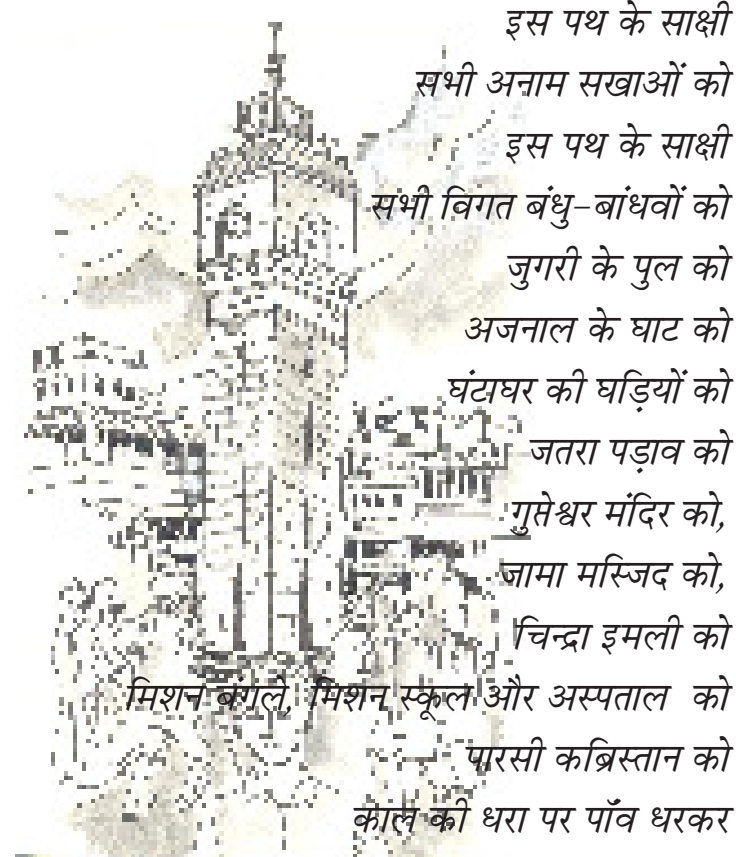 इस पथ के साक्षी
सभी अनाम सखाओं को
इस पथ के साक्षी
सभी विगत बंधु-बांधवों को
जुगरी के पुल को
अजनाल के घाट को
घंटाघर की घड़ियों को
जतरा पड़ाव को
गुप्तेश्वर मंदिर को,
जामा मस्जिद को,
चिन्द्रा इमली को
मिशन बंगले, मिशन स्कूल और अस्पताल को
पारसी कब्रिस्तान को
काल की धरा पर पाँव धरकर